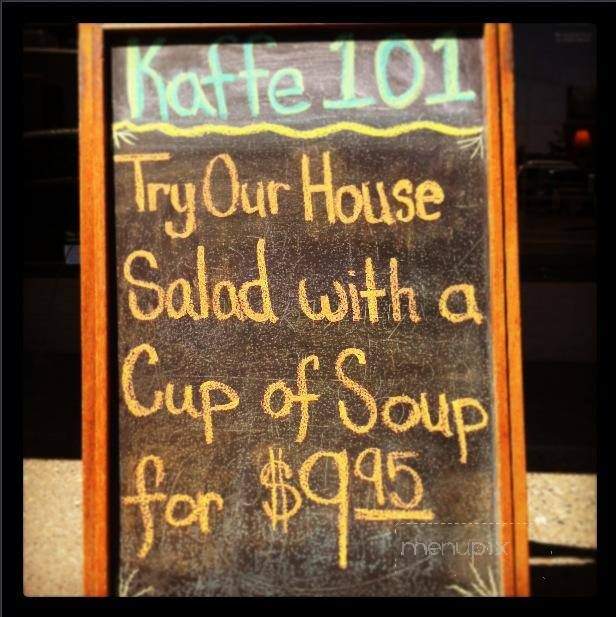 Kaffe 101
Try Our House
Salad with a
Cup of Soup
for $9.95
menupix